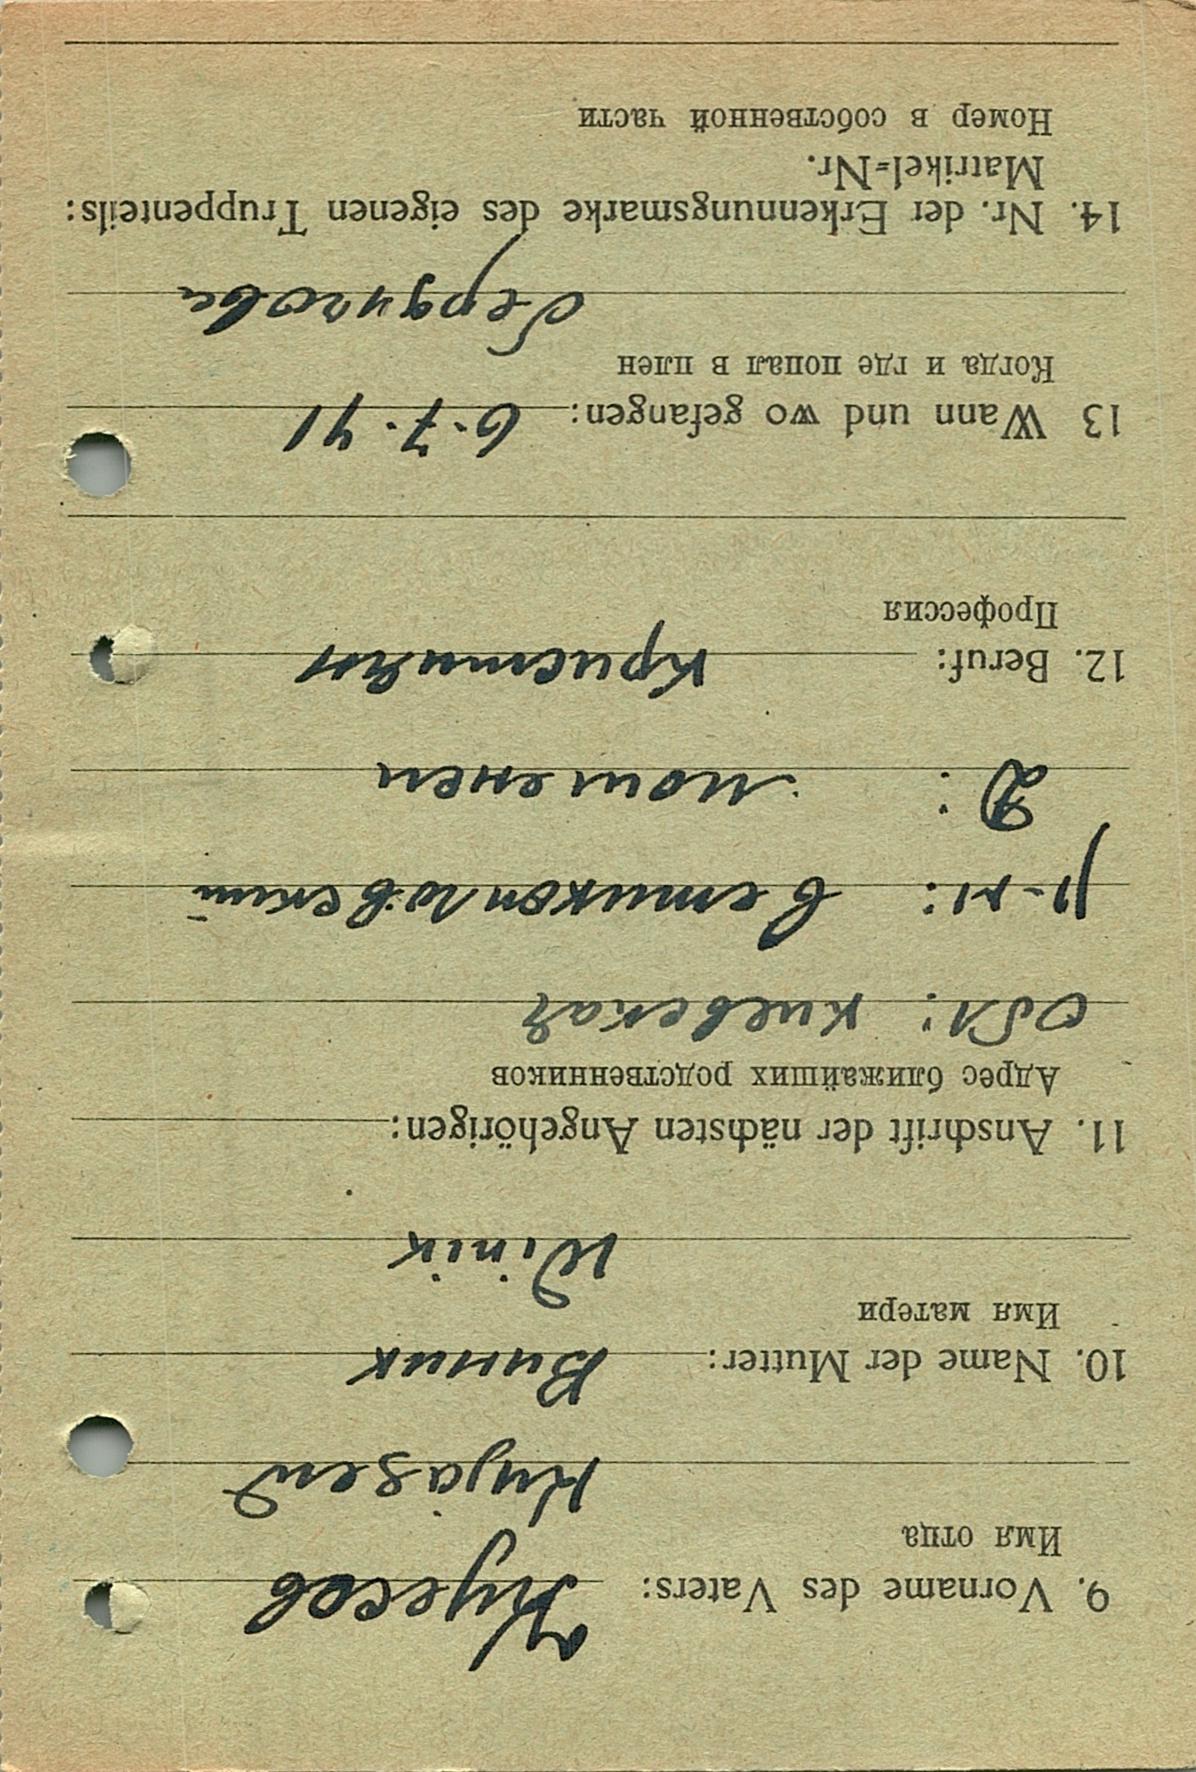 9. Vorname des Vaters:
Имя отца
10. Name der Mutter: Виник
Имя матери
Winik
11. Anschrift der nächsten Angehörigen:
Адрес ближайших родственников
Обл: киевская
р-н:
Д:
12. Beruf: кристиян
Профессия
13 Wann und wo gefangen: 6.7.41
Когда и где попал в плен
14. Nr. der Erkennungsmarke des eigenen Truppenteils:
Matrikel=Nr.
Номер в собственной части